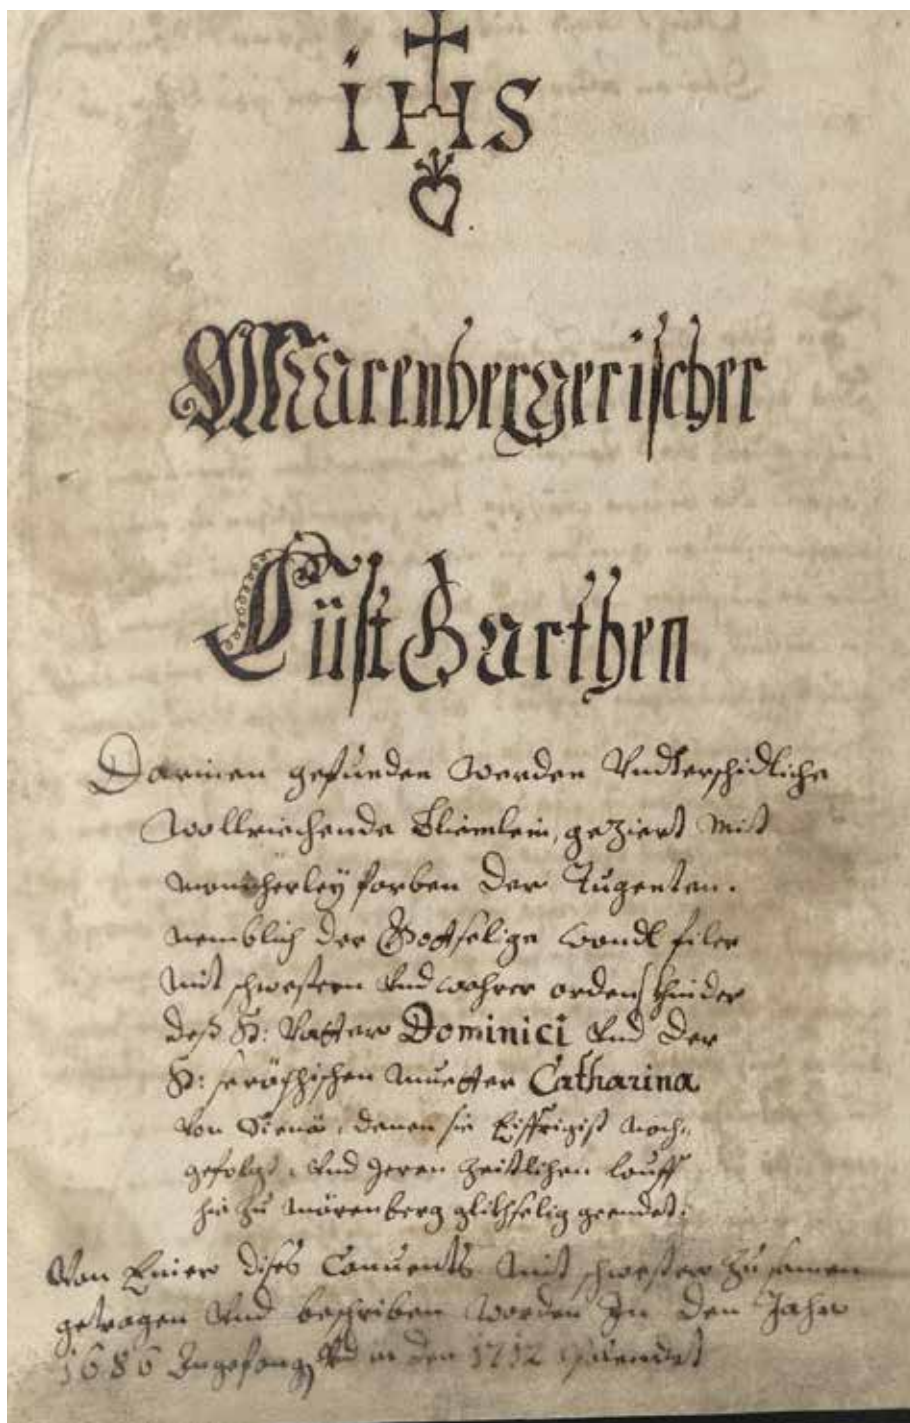 IHS
Marenbergerischer
Lüst Garthen
Darinen gefunden werden Vndterschidliche
Wollriechende Bliemlein, geziert mit
mancherley farben der Tugenten.
nemblich der Gottselige wandl filer
mit schwestern Vnd wahrer ordens Khinder
deß H: Vatters Dominici Vnd der
H: seraphischen muetter Catharina
von Siena, denen sie Eiffrigist nach-
gefolgt, Vnd Jeren zeitlichen lauff
hie zu märenberg glikhselig geendet.
Von Einer dises Conuents mit schwester zu samen
getragen Vnd beschriben worden In den Jahr
1686 Ingefang, Vnd in den 1712 geendet